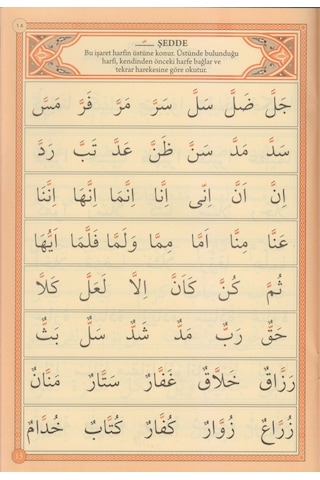 ١٨
ـــّـــ ŞEDDE
Bu işaret harfin üstüne konur. Üstünde bulunduğu
harfi, kendinden önceki harfe bağlar ve
tekrar harekesine göre okutur.
جَلَّ ضَلَّ سَلَّ سَرَّ مَرَّ فَرَّ مَسَّ
سَدَّ مَدَّ سَنَّ ظَنَّ عَدَّ تَبَّ رَدَّ
اِنَّ اَنَّ اِنّٖى اِنَّا اِنَّمَا اِنَّهَا اِنَّنَا
عَنَّا مِنَّا اَمَّا مِمَّا وَلَمَّا فَلَمَّا اَيُّهَا
ثُمَّ كُنَّ كَاَنَّ اِلَّا لَعَلَّ كَلَّا
حَقٌّ رَبٌّ مَدٌّ شَدٌّ سَلٌّ بَثٌّ
رَزَّاقٌ خَلَّاقٌ غَفَّارٌ سَتَّارٌ مَنَّانٌ
زُرَّاعٌ زُوَّارٌ كُفَّارٌ كُتَّابٌ خُدَّامٌ
15